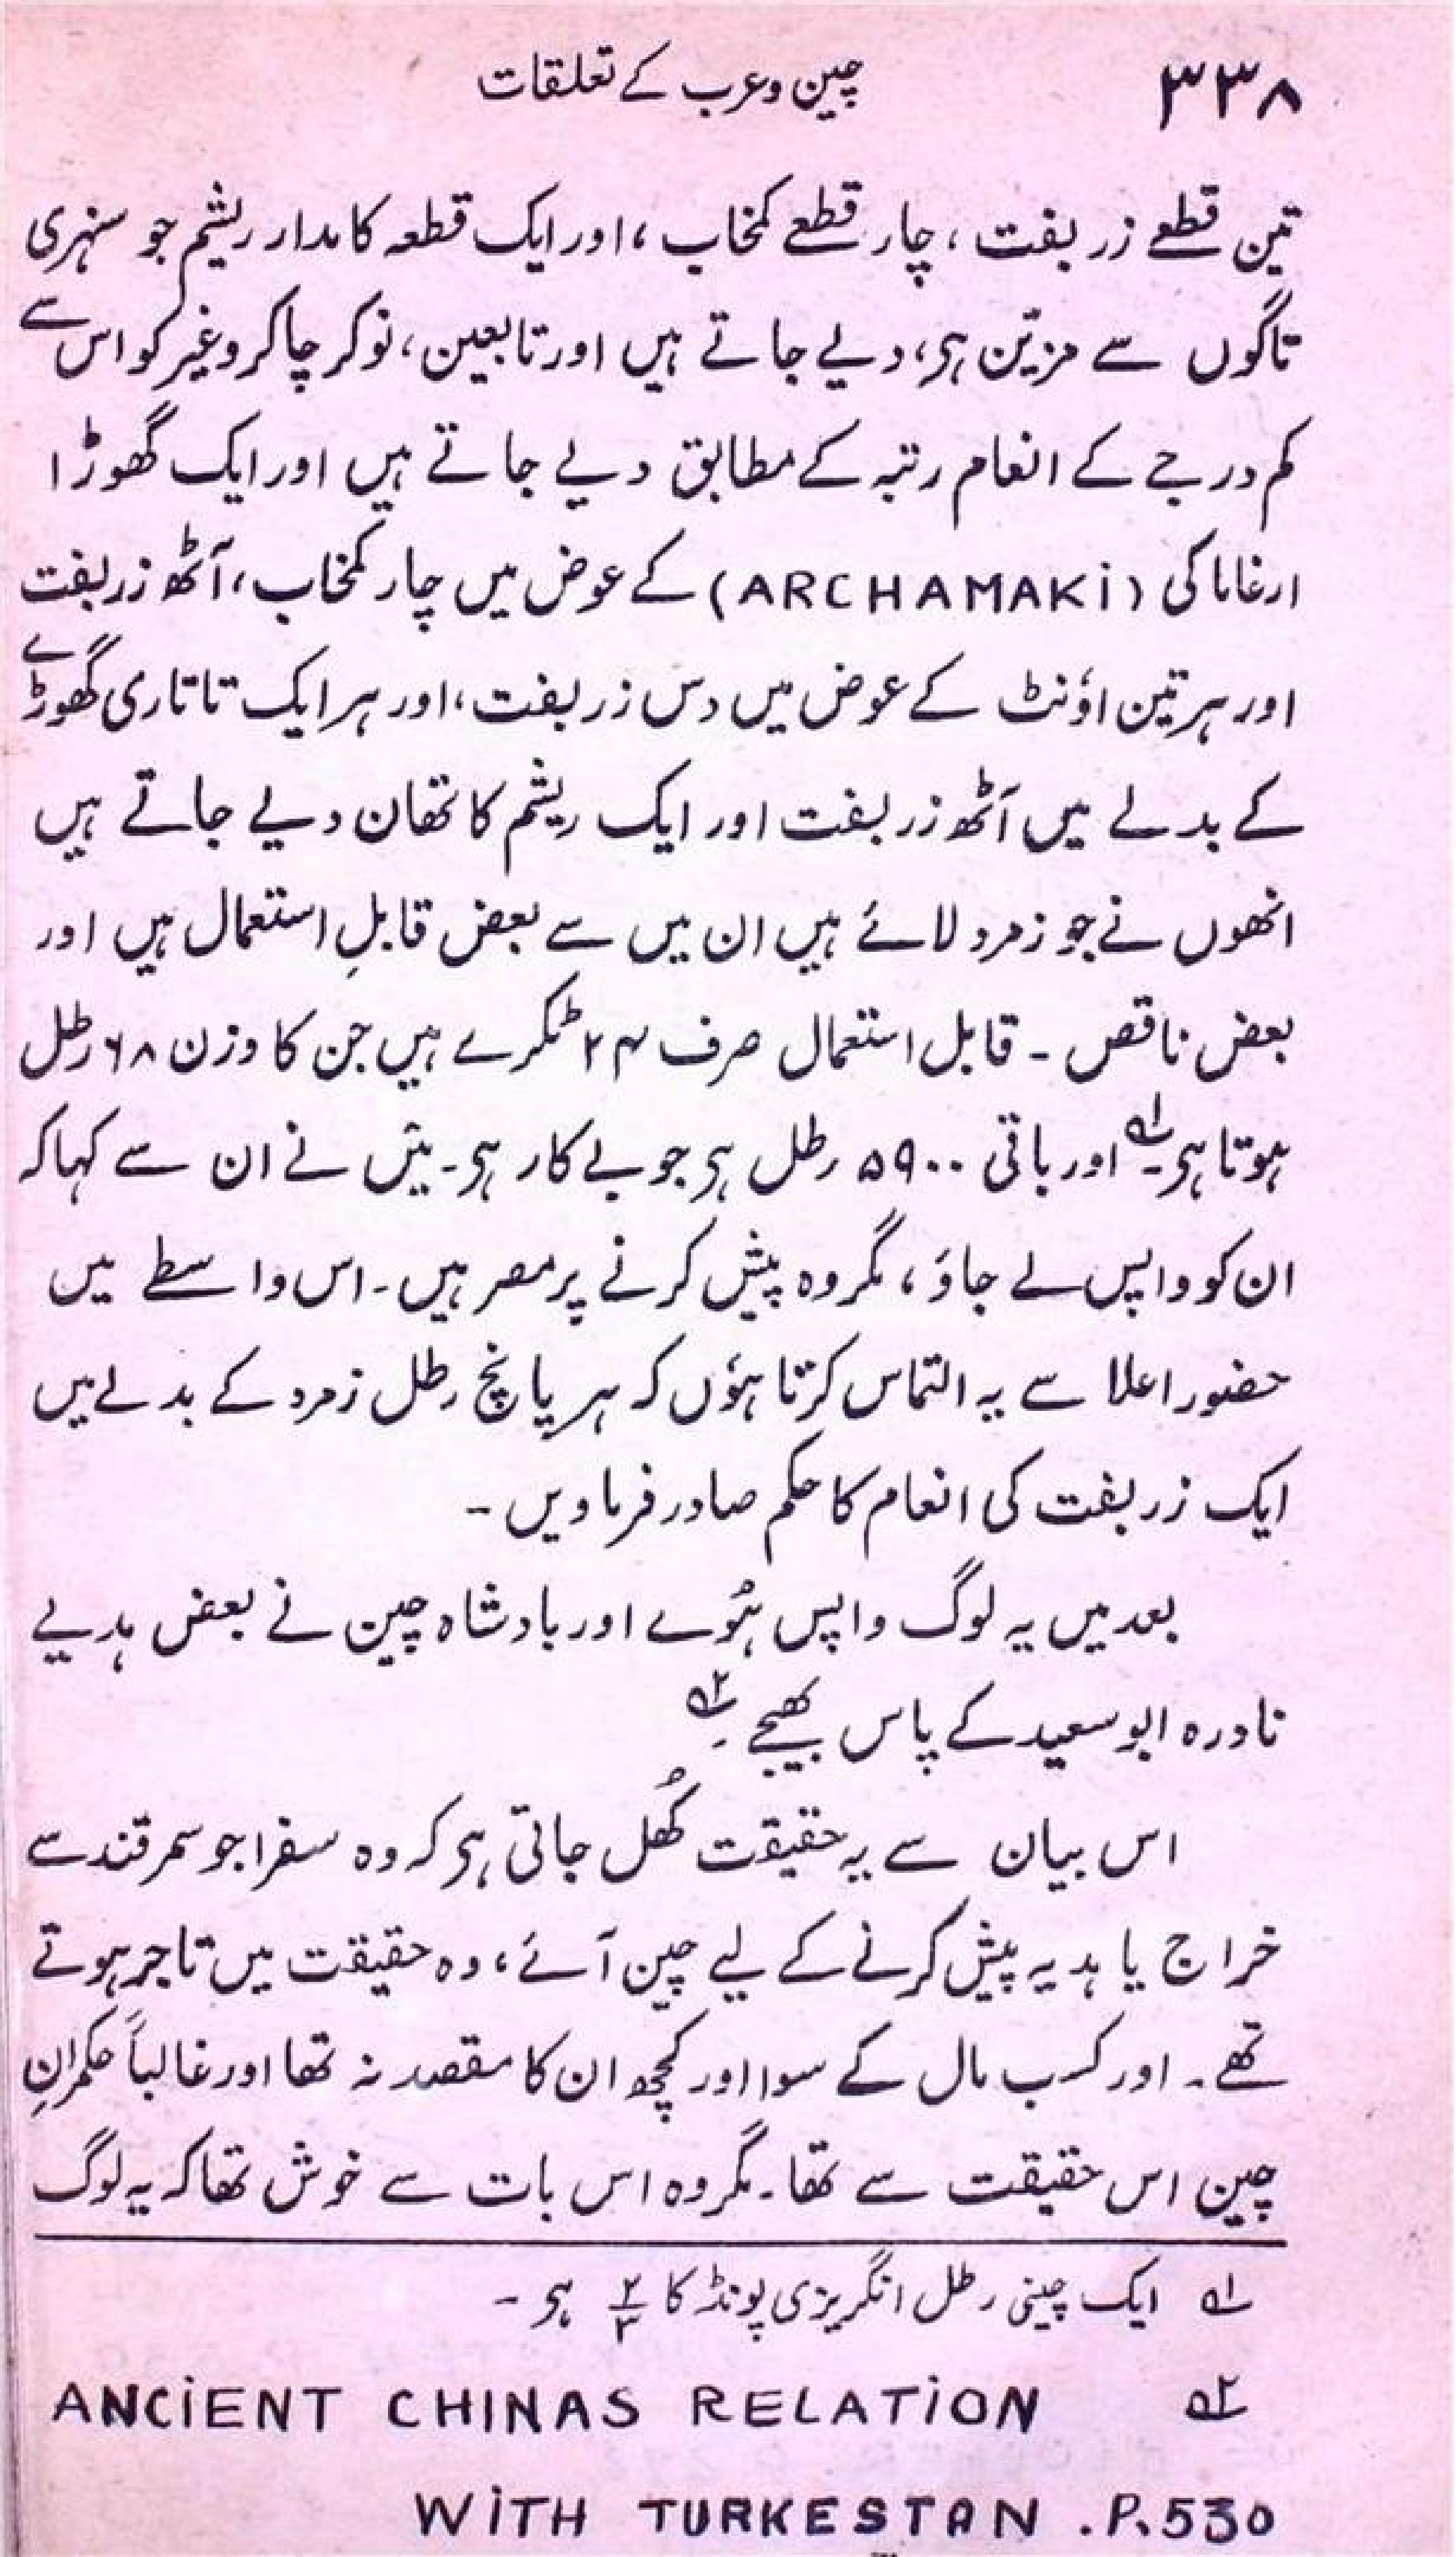 ۳۳۸ چین و عرب کے تعلقات
تین قطعے زر بفت، چار قطعے کمخاب، اور ایک قطعہ کامدار ریشم جو سنہری
تاگوں سے مزین ہی، دیے جاتے ہیں اور تابعین، نوکر چاکر وغیر کو اس سے
کم درجے کے انعام رتبہ کے مطابق دیے جاتے ہیں اور ایک گھوڑا
ارغاماکی (ARCHAMAKi) کے عوض میں چار کمخاب، آٹھ زربفت
اور ہر تین اؤنٹ کے عوض میں دس زربفت، اور ہر ایک تاتاری گھوڑے
کے بدلے میں آٹھ زربفت اور ایک ریشم کا تھان دیے جاتے ہیں
انھوں نے جو زمرد لائے ہیں ان میں سے بعض قابلِ استعمال ہیں اور
بعض ناقص ۔ قابل استعمال صرف ۲۴ ٹکرے ہیں جن کا وزن ۶۸ رطل
ہوتا ہی۔ ؂۱ اور باقی ۵۹۰۰ رطل ہی جو بے کار ہی۔ میں نے ان سے کہا کہ
ان کو واپس لے جاؤ، مگر وہ پیش کرنے پر مصر ہیں۔ اس واسطے میں
حضور اعلا سے یہ التماس کرتا ہؤں کہ ہر پانچ رطل زمرد کے بدلے میں
ایک زربفت کی انعام کا حکم صادر فرماویں ۔
بعد میں یہ لوگ واپس ہُوے اور بادشاہ چین نے بعض ہدیے
نادرہ ابو سعید کے پاس بھیجے ۔ ؂۲
اس بیان سے یہ حقیقت کُھل جاتی ہی کہ وہ سفرا جو سمرقند سے
خراج یا ہدیہ پیش کرنے کے لیے چین آئے، وہ حقیقت میں تاجر ہوتے
تھے۔ اور کسب مال کے سوا اور کچھ ان کا مقصد نہ تھا اور غالباً حکمرانِ
چین اس حقیقت سے تھا۔ مگر وہ اس بات سے خوش تھا کہ یہ لوگ
؂۱ ایک چینی رطل انگریزی پونڈ کا ۲/۳ ہی ۔
؂۲ ANCiENT CHINAS RELATiON
WiTH TURKESTAN .P.530